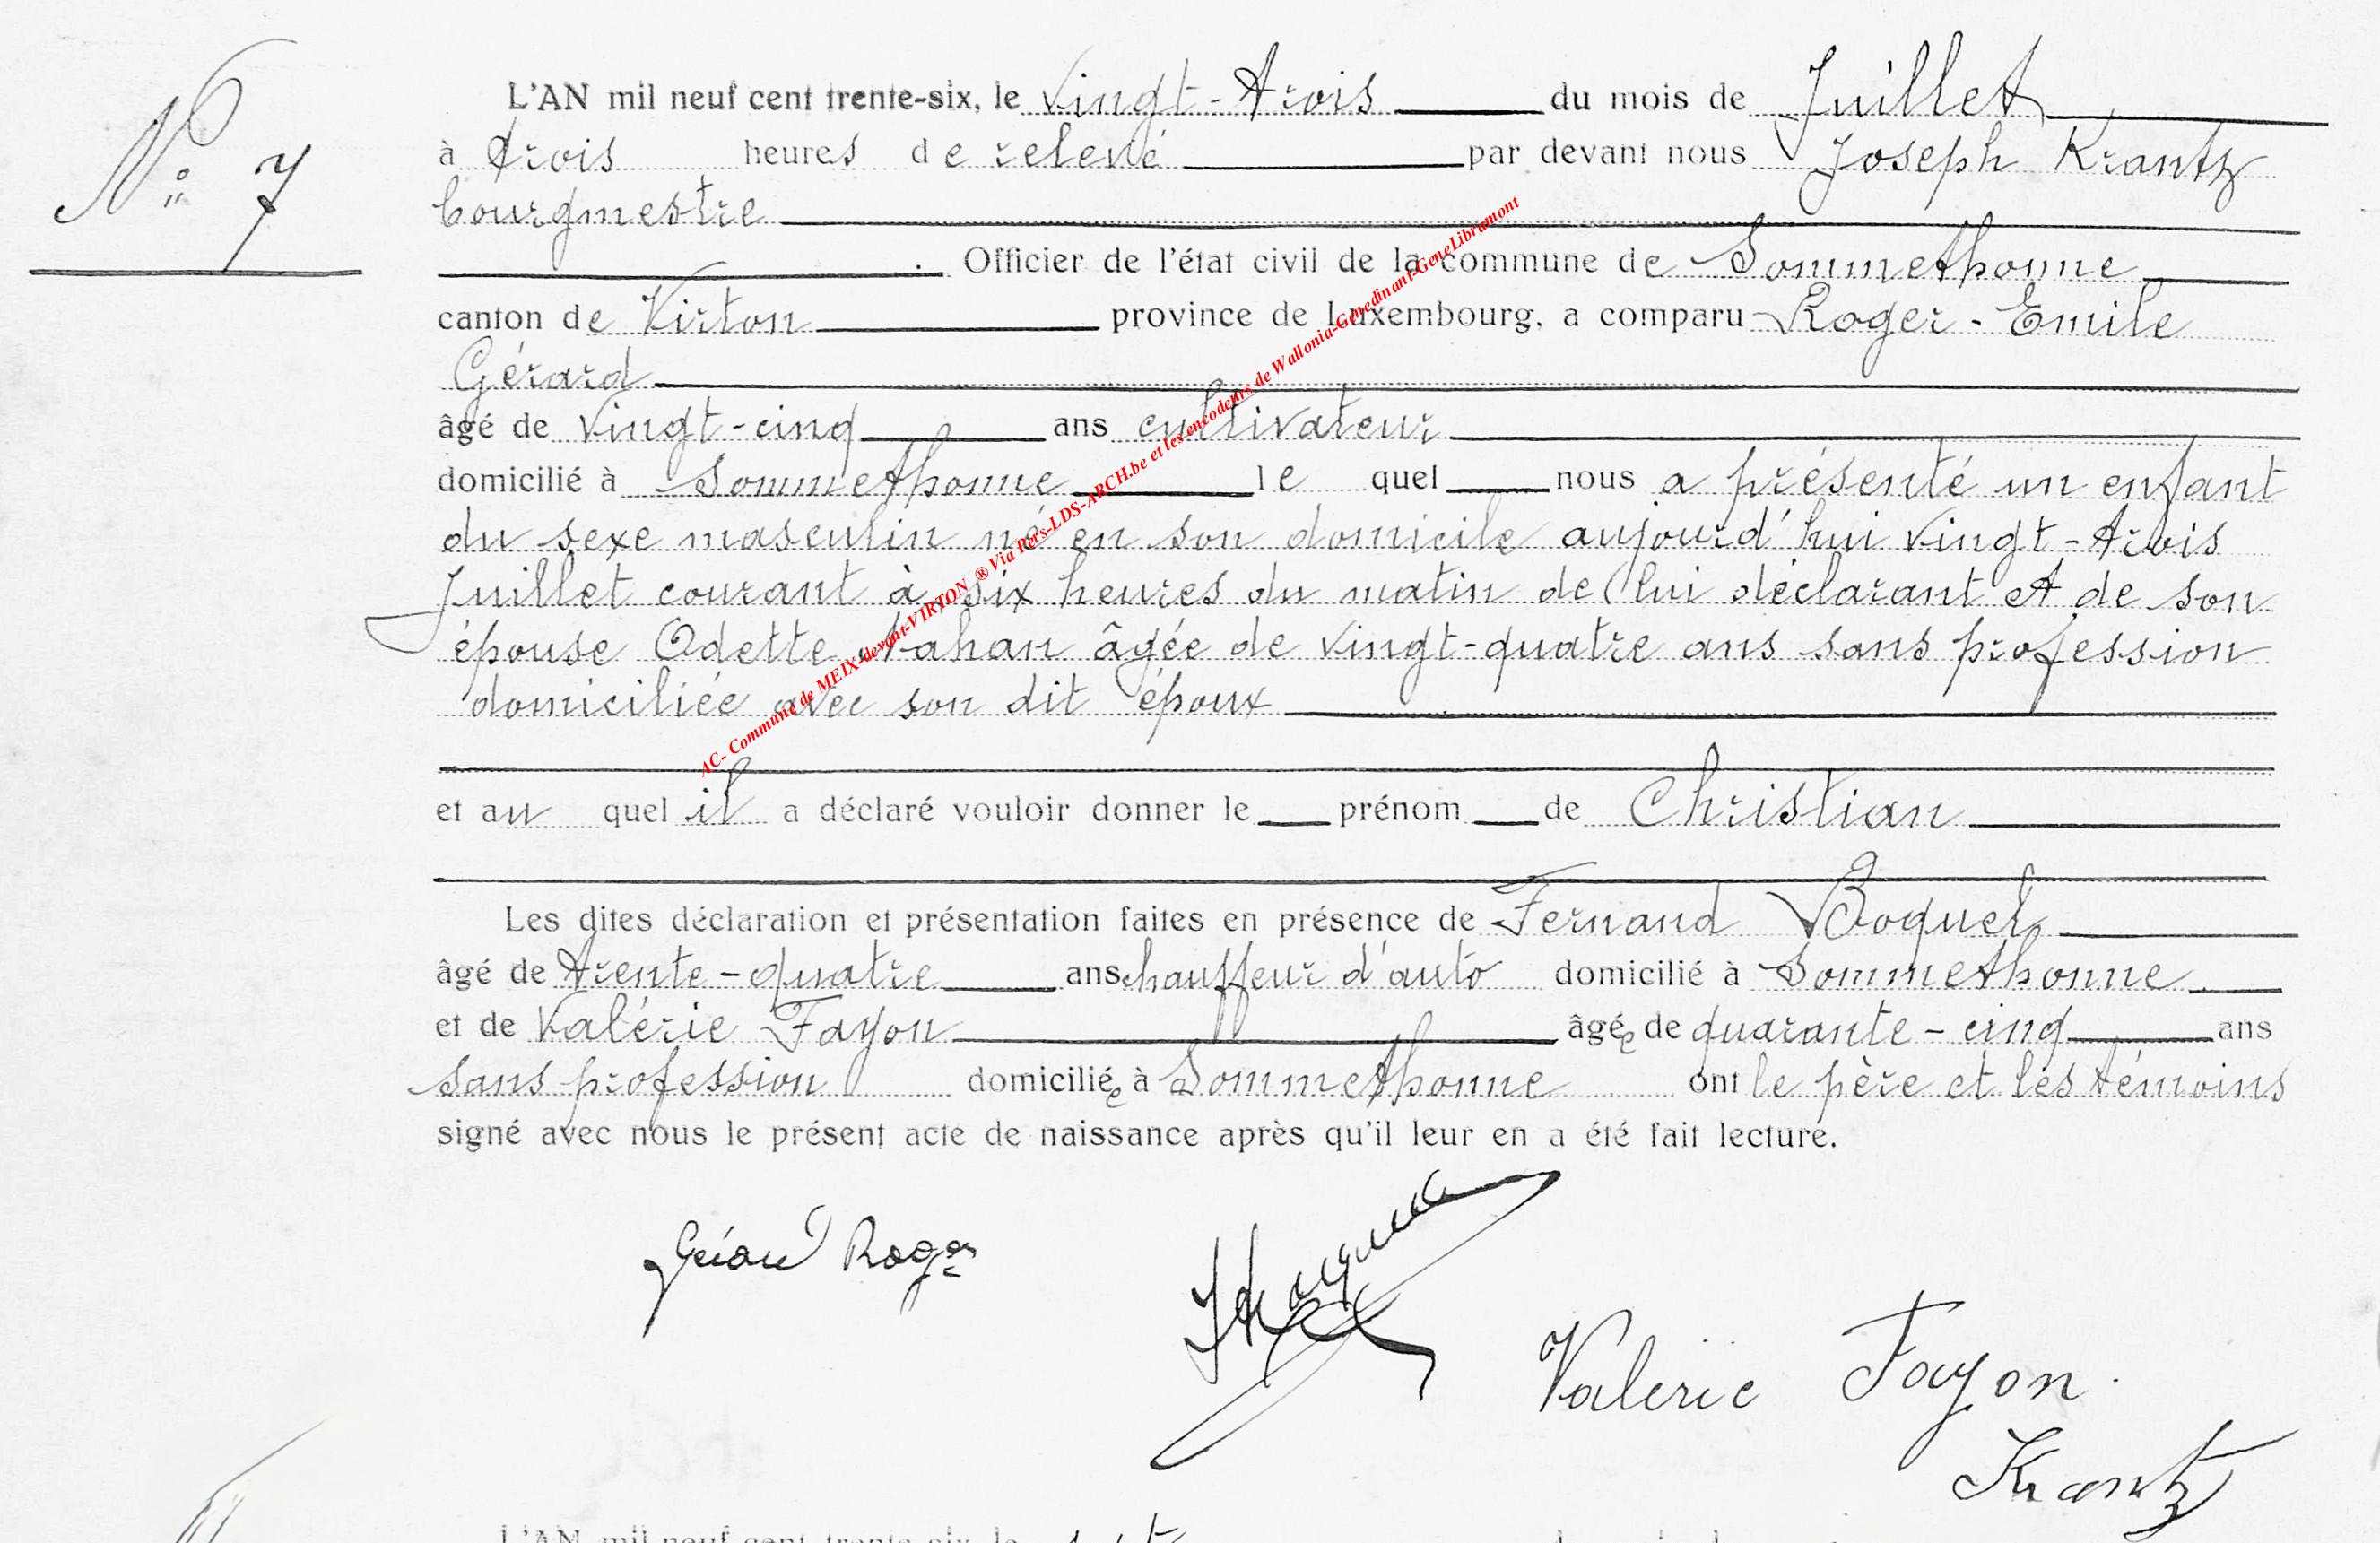 N° 7
L'AN mil neuf cent trente-six, le vingt-trois du mois de Juillet
à trois heures de relevé par devant nous Joseph Krantz
bourgmestre
Officier de l'état civil de la commune de Sommethonne
canton de Virton province de Luxembourg, a comparu Roger-Emile
Gérard
âgé de vingt-cinq ans cultivateur
domicilié à Sommethonne lequel nous a présenté un enfant
du sexe masculin né en son domicile aujourd'hui vingt-trois
Juillet courant à six heures du matin de lui déclarant et de son
épouse Odette Nahan âgée de vingt-quatre ans sans profession
domiciliée avec son dit époux
et au quel il a déclaré vouloir donner le prénom de Christian
Les dites déclaration et présentation faites en présence de Fernand Boquel
âgé de trente-quatre ans chauffeur d'auto domicilié à Sommethonne
et de Valérie Fayon âgée de quarante-cinq ans
sans profession domiciliée à Sommethonne ont le père et les témoins
signé avec nous le présent acte de naissance après qu'il leur en a été fait lecture.
Gérard Roger
Valerie Fayon.
Krantz
L'AN mil neuf cent trente-six, le
AC- Commune de MEIX-devant-VIRTON ® Via Pers-LDS-ARCH.be et les encodeurs de Wallonia-Genedinant-GeneLibramont